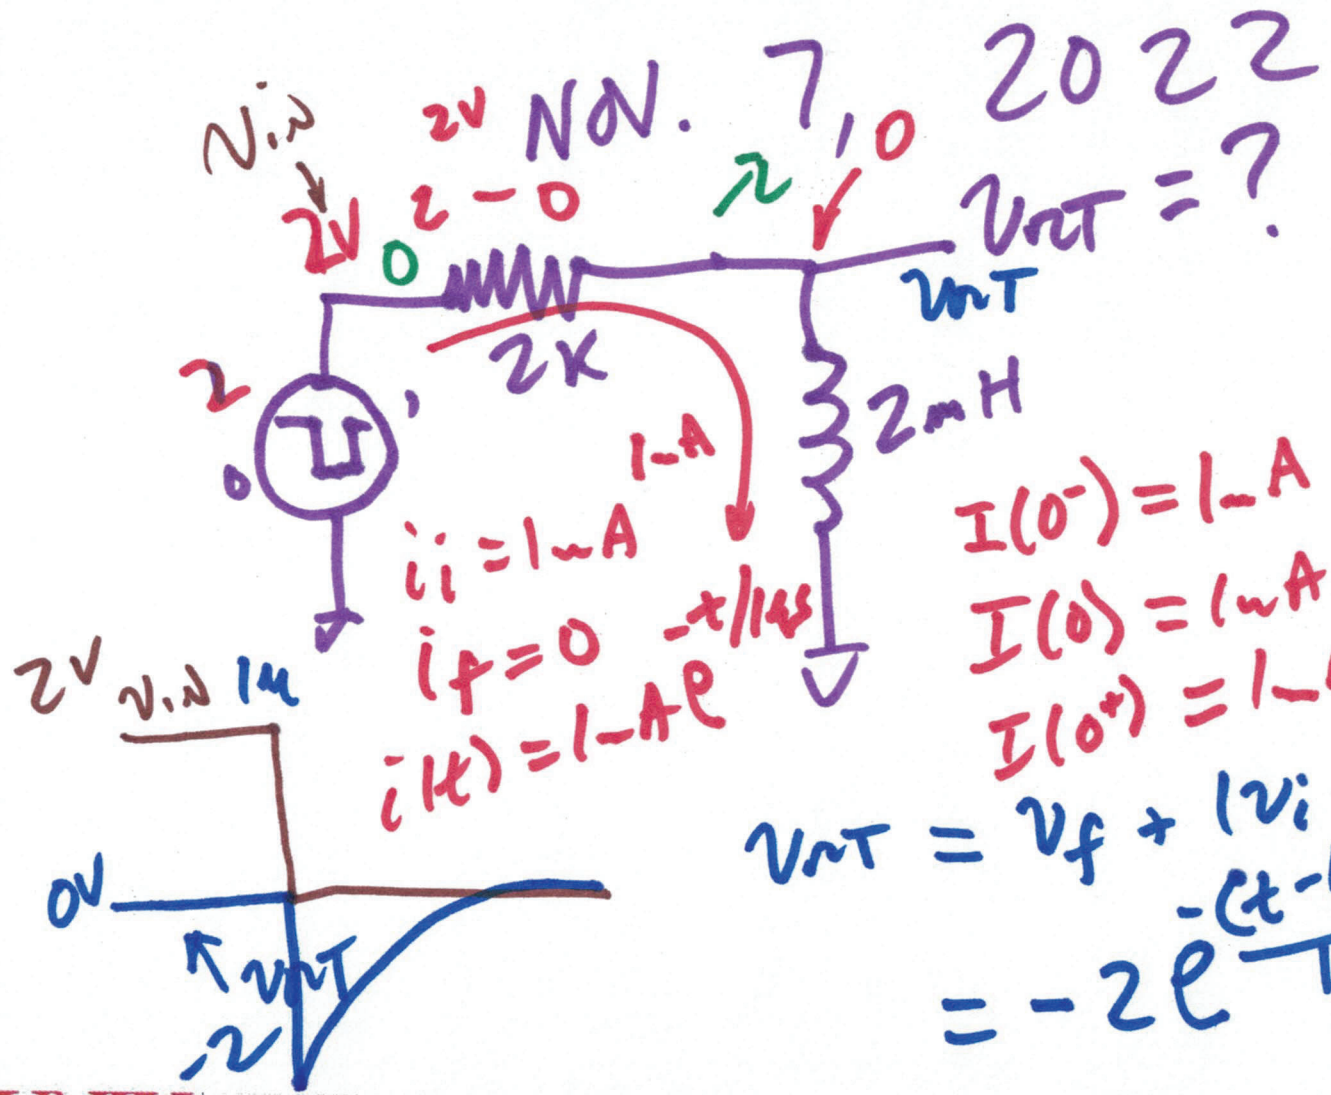 NOV. 7, 2022
Vin
2V
0
2V
2 - 0
-2
0
VOUT = ?
VOUT
2K
2
0
2mH
1mA
ii = 1mA
if = 0
i(t) = 1mA e -t/1us
I(0-) = 1mA
I(0) = 1mA
I(0+) = 1m
2V Vin 1u
0V
VOUT
-2
VOUT = Vf + (Vi
= -2 e -(t-